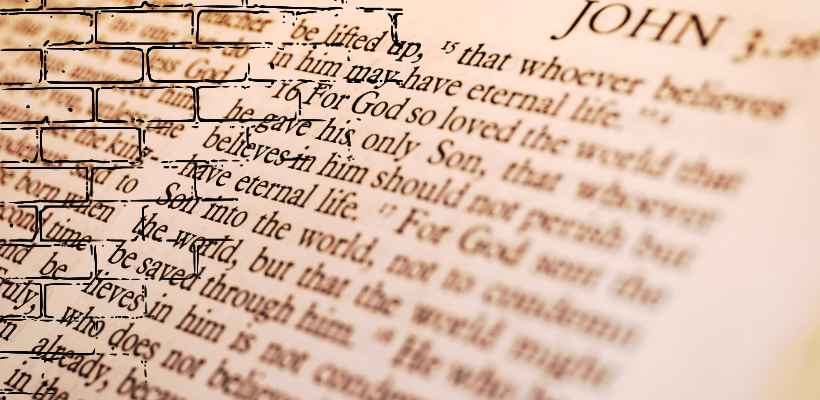 JOHN
teacher
no one can do
unless God
answered him
unless one
see the king-
said to
be born when
second time
and be
Truly,
be lifted up, 15 that whoever believes
in him may have eternal life.
16 For God so loved the world that
he gave his only Son, that whoever
believes in him should not perish but
have eternal life. 17 For God sent the
Son into the world, not to condemn
the world, but that the world might
be saved through him. 18 He who
lieves in him is not condemn
who does not believe
already, becau
in the